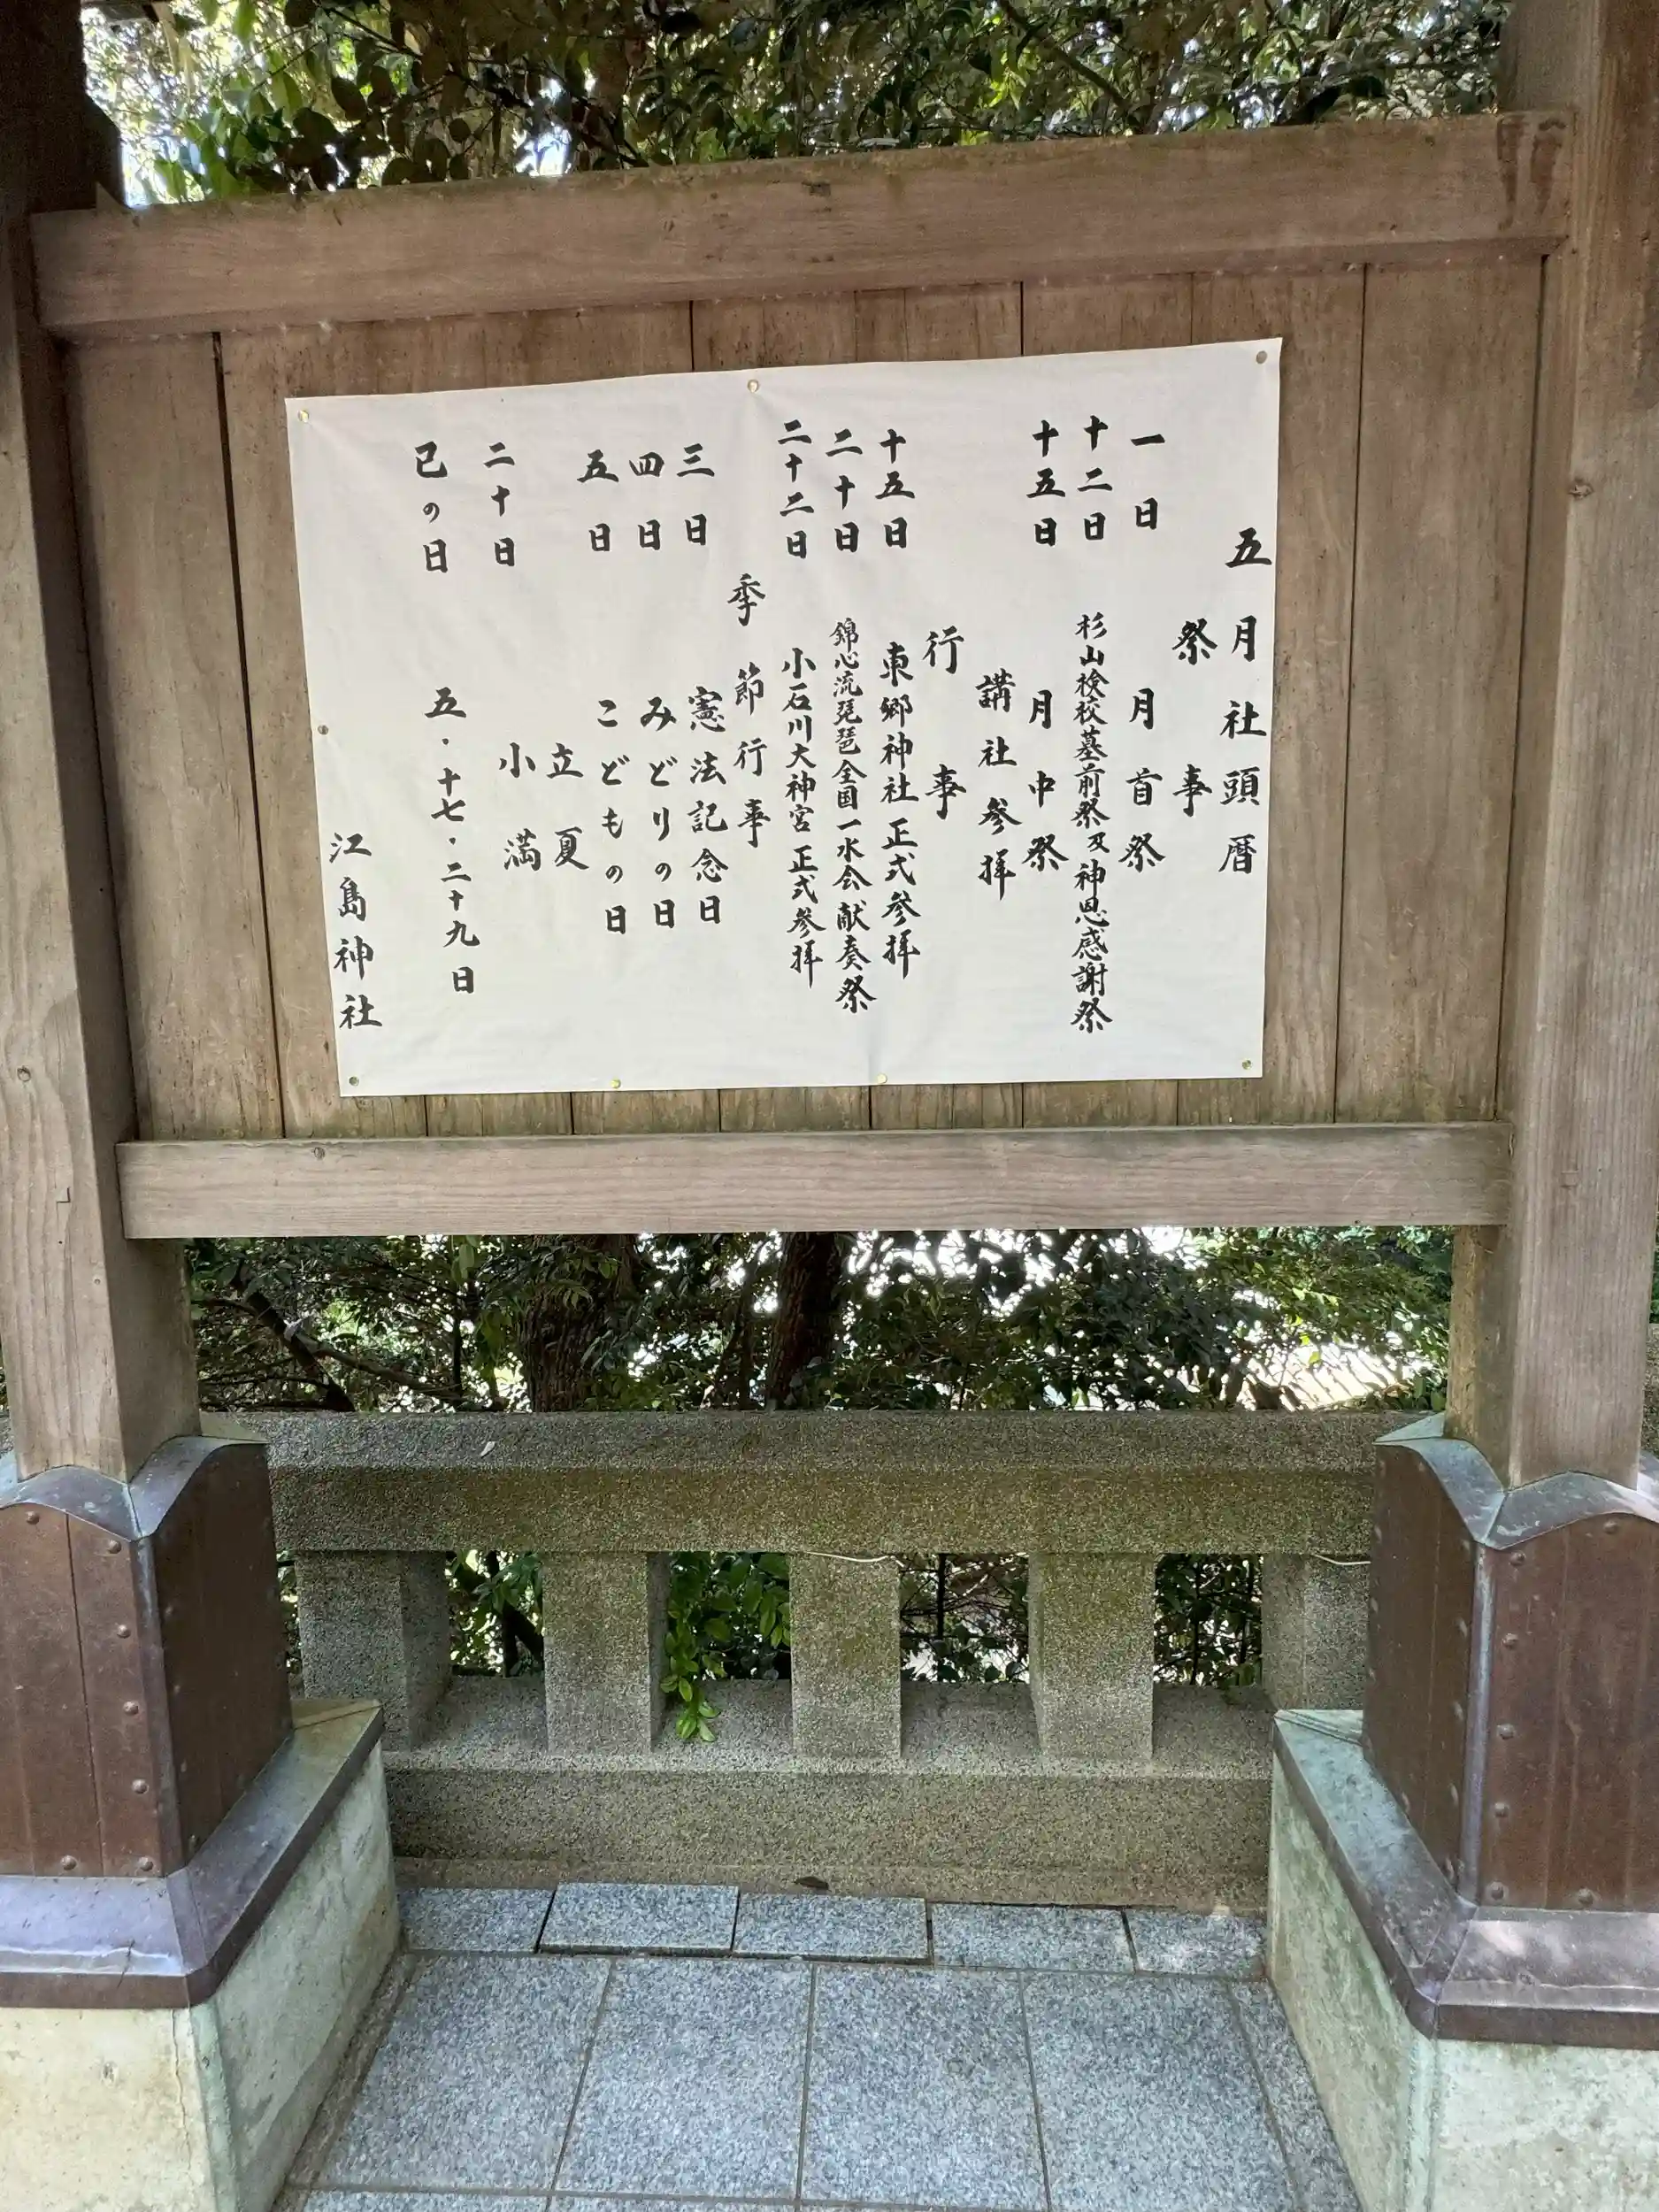 五月社頭暦
祭事
一日 月首祭
十二日 杉山検校墓前祭及神恩感謝祭
十五日 月中祭
講社参拝
行事
十五日 東郷神社正式参拝
二十日 錦心流琵琶全国一水会献奏祭
二十二日 小石川大神宮正式参拝
季節行事
三日 憲法記念日
四日 みどりの日
五日 こどもの日
立夏
二十日 小満
己の日 五・十七・二十九日
江島神社